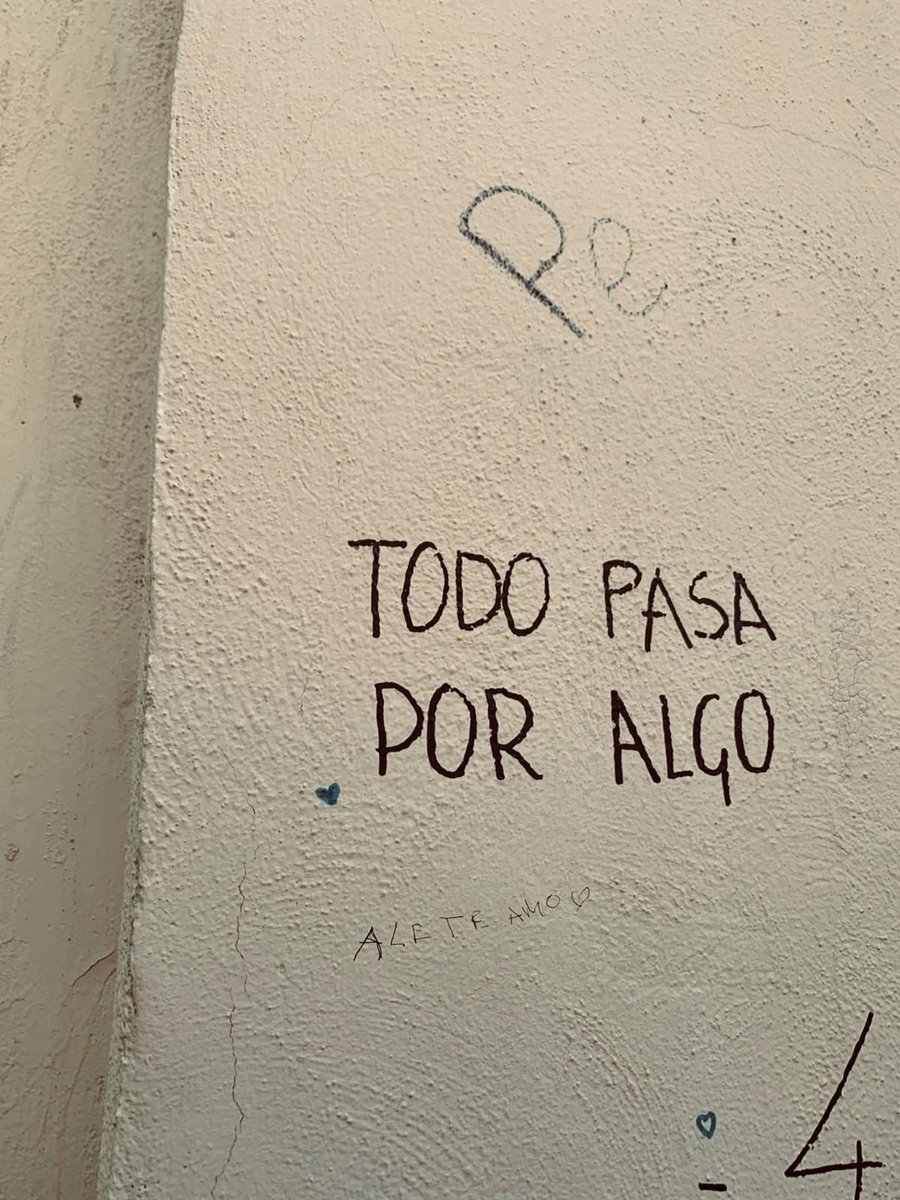 Pe
TODO PASA
POR ALGO
ALE TE AMO
- 4